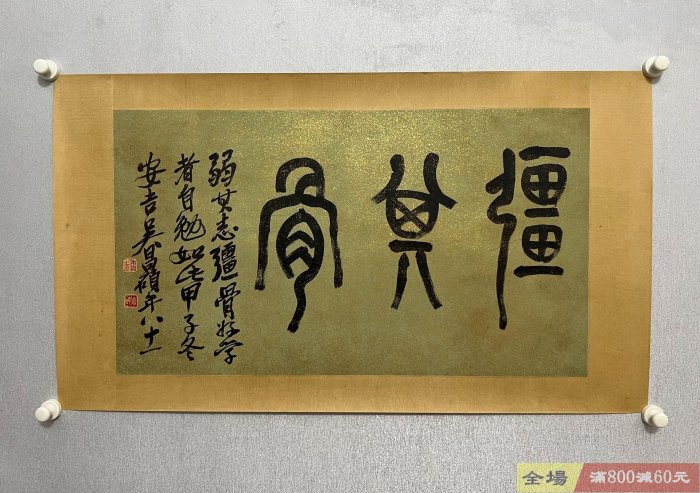 彊其骨
弱其志彊骨好学
者自勉如此甲子冬
安吉吴昌碩年八十一
全場 滿800減60元